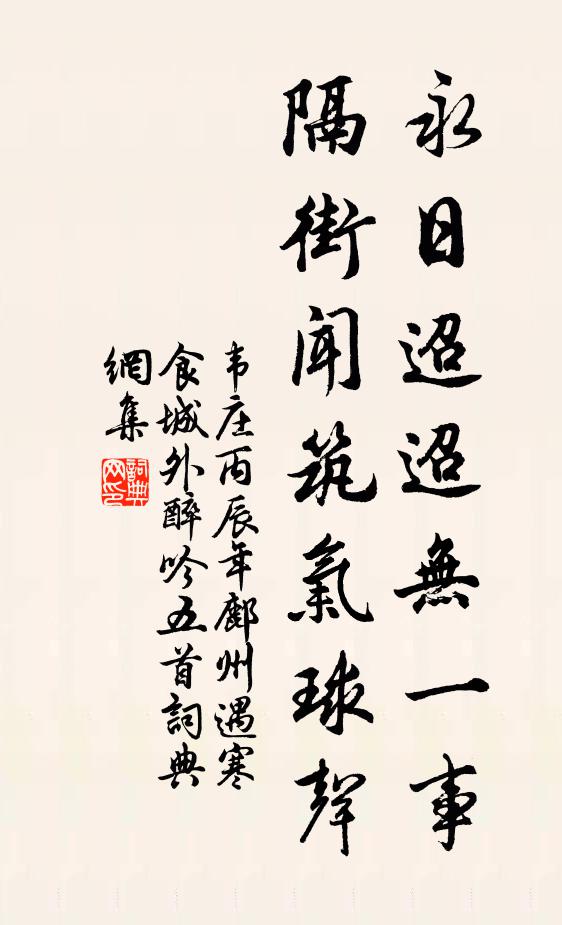 永日迢迢無一事
隔街聞筑氣球聲
韦庄丙辰年鄜州遇寒
食城外醉吟五首詞典
網集
詞典
网印